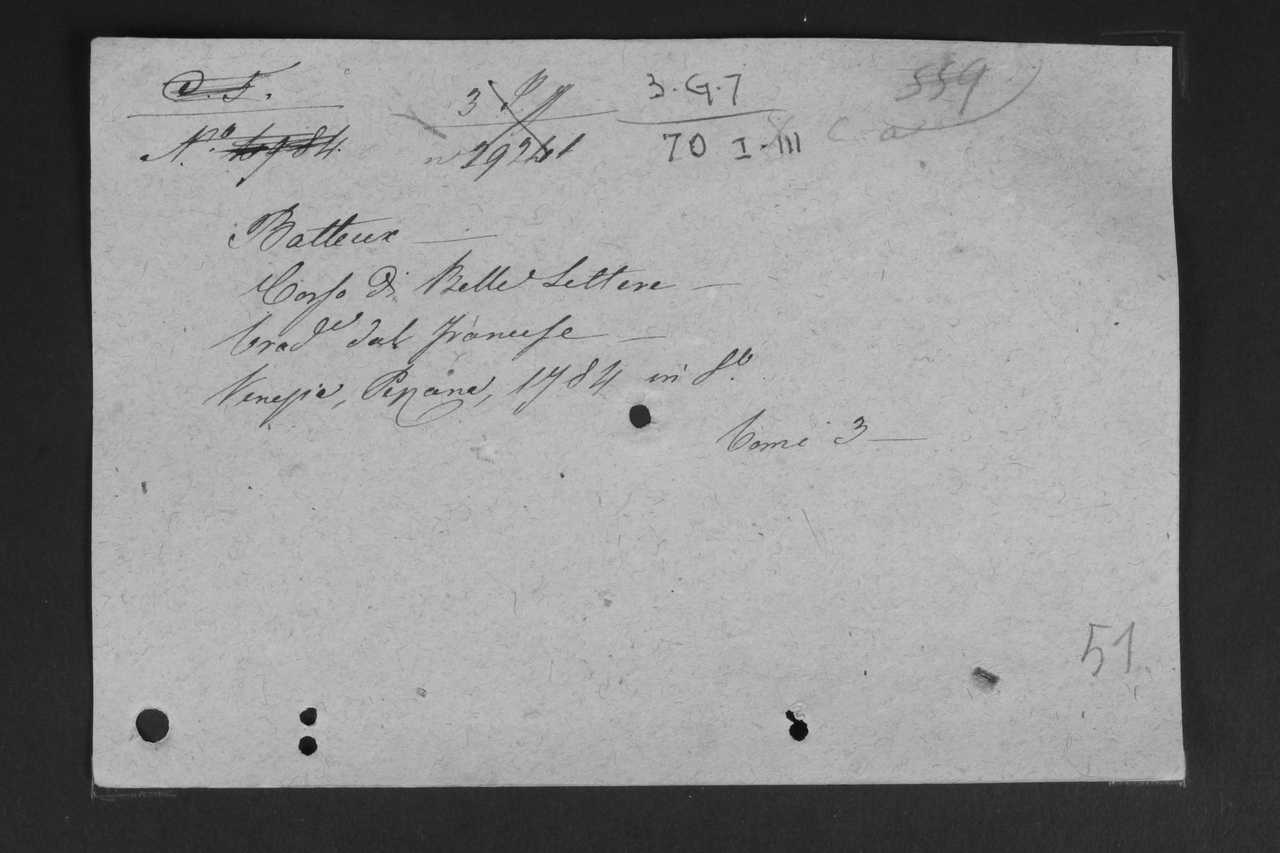 C. F. 3 3.G.7 559
N.o 29241 70 I-III C. a
Batteux —
Corso di Belle Lettere —
trad.e dal francese —
Venezia, Pezzana, 1784 in 8.o
tomi 3 —
51